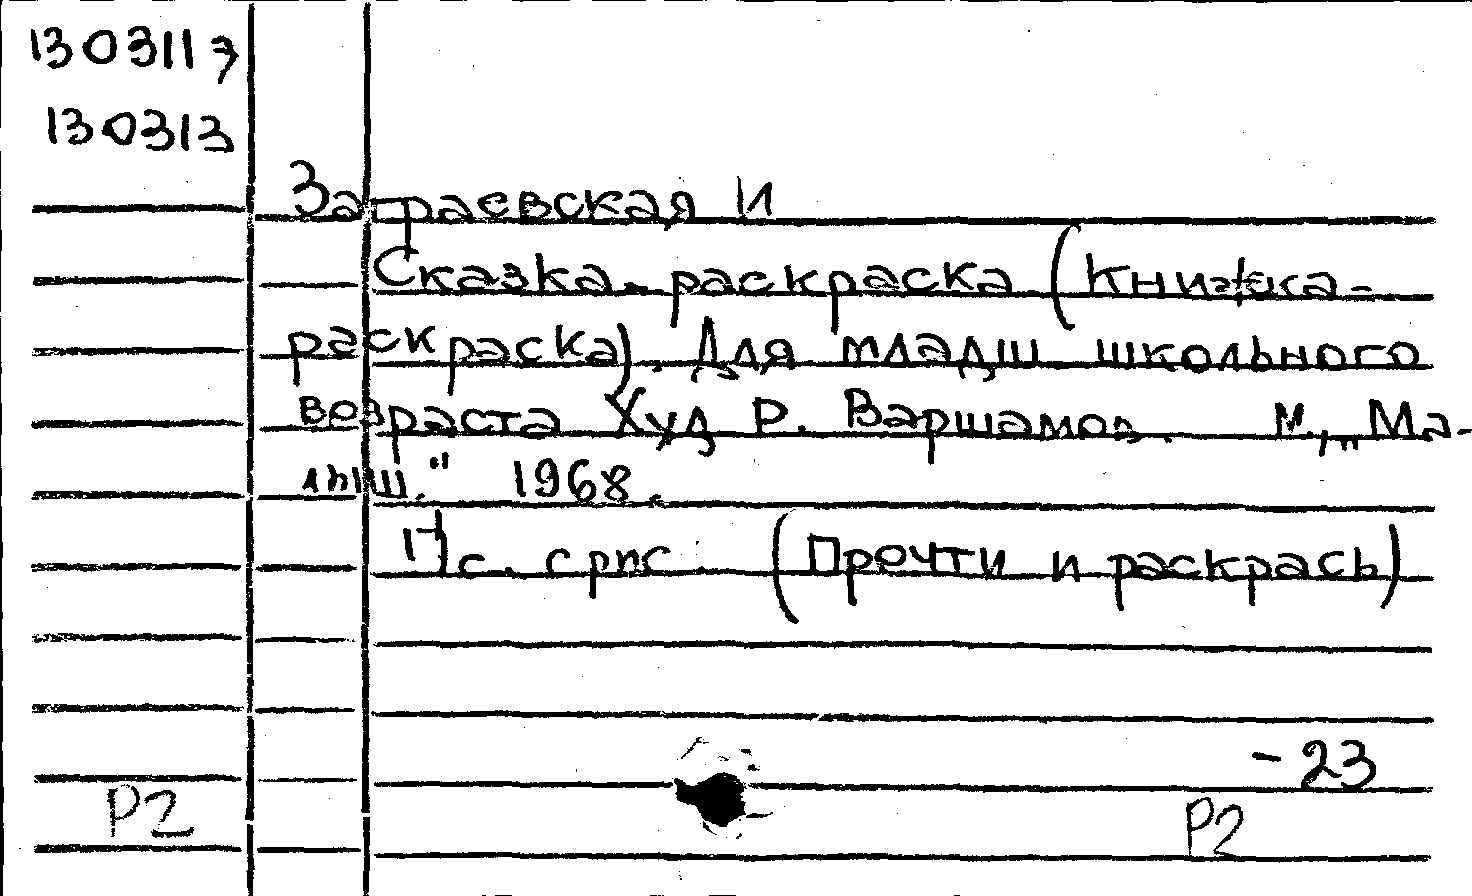 1303117
130313
Заграевская И
Сказка-раскраска (Книжка-
раскраска). Для младш школьного
возраста Худ Р. Варшамов. М, „Ма-
лыш." 1968.
17с. с рис. (Прочти и раскрась)
-23
Р2
Р2